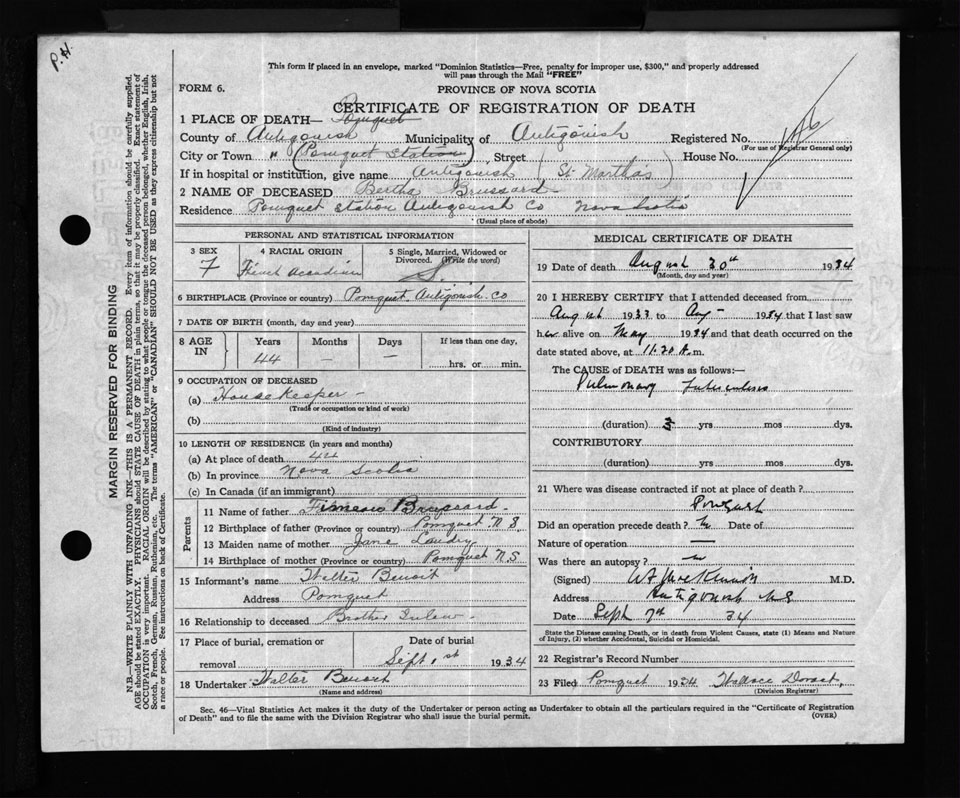 P.H.
This form if placed in an envelope, marked "Dominion Statistics—Free, penalty for improper use, $300," and properly addressed
will pass through the Mail "FREE"
FORM 6.
PROVINCE OF NOVA SCOTIA
CERTIFICATE OF REGISTRATION OF DEATH
1 PLACE OF DEATH— Pomquet
County of Antigonish Municipality of Antigonish Registered No. 146
(For use of Registrar General only)
City or Town " (Pomquet Station) Street House No.
If in hospital or institution, give name Antigonish (St. Marthas)
2 NAME OF DECEASED Bertha Brussard
Residence Pomquet Station Antigonish Co Nova Scotia
(Usual place of abode)
PERSONAL AND STATISTICAL INFORMATION
3 SEX 4 RACIAL ORIGIN 5 Single, Married, Widowed or
Divorced. (Write the word)
F French Accadian S.
6 BIRTHPLACE (Province or country) Pomquet Antigonish Co
7 DATE OF BIRTH (month, day and year)
8 AGE IN Years Months Days If less than one day,
44 — — hrs. or min.
9 OCCUPATION OF DECEASED
(a) Housekeeper —
(Trade or occupation or kind of work)
(b)
(Kind of industry)
10 LENGTH OF RESIDENCE (in years and months)
(a) At place of death 44
(b) In province Nova Scotia
(c) In Canada (if an immigrant)
Parents
11 Name of father Brussard
12 Birthplace of father (Province or country) Pomquet N.S.
13 Maiden name of mother Jane Landry
14 Birthplace of mother (Province or country) Pomquet N.S.
15 Informant's name Walter Benoit
Address Pomquet
16 Relationship to deceased Brother Inlaw
17 Place of burial, cremation or Date of burial
removal Sept 1st 1934
18 Undertaker Walter Benoit
(Name and address)
MEDICAL CERTIFICATE OF DEATH
19 Date of death August 30th 1934
(Month, day and year)
20 I HEREBY CERTIFY that I attended deceased from
August 1933 to Aug — 1934 that I last saw
her alive on May 1934 and that death occurred on
date stated above, at 11.20 A.m.
The CAUSE of DEATH was as follows:
Pulmonary Tuberculosis
(duration) 3 yrs mos dys.
CONTRIBUTORY
(duration) yrs. mos. dys.
21 Where was disease contracted if not at place of death?
Pomquet
Did an operation precede death? No Date of
Nature of operation —
Was there an autopsy? No
(Signed) M.D.
Address Antigonish N.S
Date Sept 7th 34
State the Disease causing Death, or in death from Violent Causes, state (1) Means and Nature
of Injury, (2) whether Accidental, Suicidal or Homicidal.
22 Registrar's Record Number
23 Filed Pomquet 1934 Wallace
(Division Registrar)
Sec. 46—Vital Statistics Act makes it the duty of the Undertaker or person acting as Undertaker to obtain all the particulars required in the "Certificate of Registration
of Death" and to file the same with the Division Registrar who shall issue the burial permit. (OVER)
MARGIN RESERVED FOR BINDING
N.B.—WRITE PLAINLY WITH UNFADING INK—THIS IS A PERMANENT RECORD. Every item of information should be carefully supplied.
AGE should be stated EXACTLY. PHYSICIANS should STATE CAUSE OF DEATH in plain terms, so that it may be properly classified. Exact statement of
OCCUPATION is very important. RACIAL ORIGIN will be described by stating to what people or tongue the deceased person belonged, whether English, Irish,
Scotch, French, German, Russian, Ruthenian, etc. The terms "AMERICAN" or "CANADIAN" SHOULD NOT BE USED as they express citizenship but not
a race or people. See instructions on back of Certificate.